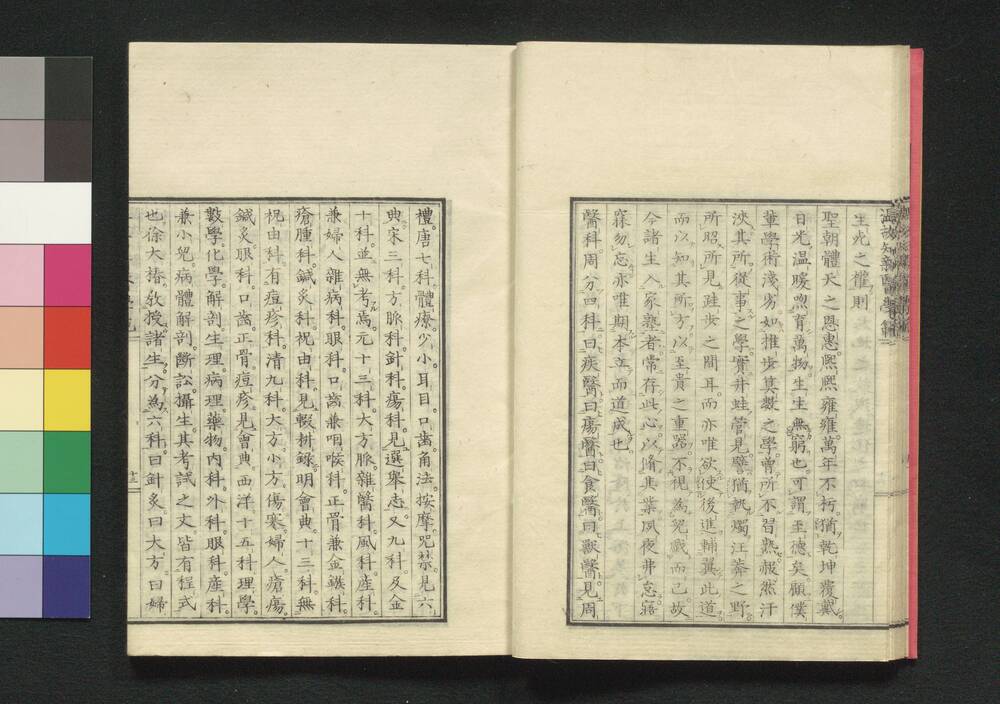 生光之權則
聖朝體天之恩惠熙熙雍雍萬年不朽猶乾坤覆戴
日光溫暖喣育萬物生生無窮也可謂至德矣顧僕
輩學術淺劣如推步其數之學曽所不習熟赧然汗
浹其所從事之學實井蛙管見譬猶執燭汪莽之野
所昭所見跬步之間耳而亦唯欲使後進輔翼此道
而以知其所方以至貴之重器不視為兒戲而已故
今諸生入家塾者常存此心以脩其業夙夜弗忘寤
寐勿忘亦唯期本立而道成也
醫科周分四科曰疾醫曰瘍醫曰食醫曰獸醫見周
禮唐七科體療少小耳目口齒角法按摩咒禁見六
典宋三科方脈科針科瘍科見選擧志又九科及金
十科並無考焉元十三科大方脈雜醫科風科産科
兼婦人雜病科眼科口齒兼咽喉科正骨兼金鏃科
瘡腫科鍼灸科祝由科見輟耕錄明會典十三科無
祝由科有痘疹科清九科大方小方傷寒婦人瘡瘍
鍼灸眼科口齒正骨痘疹見會典西洋十五科理學
數學化學解剖生理病理藥物内科外科眼科産科
兼小兒病體解剖斷訟攝生其考試之丈皆有程式
也徐大椿教授諸生分為六科曰針灸曰大方曰婦
十三